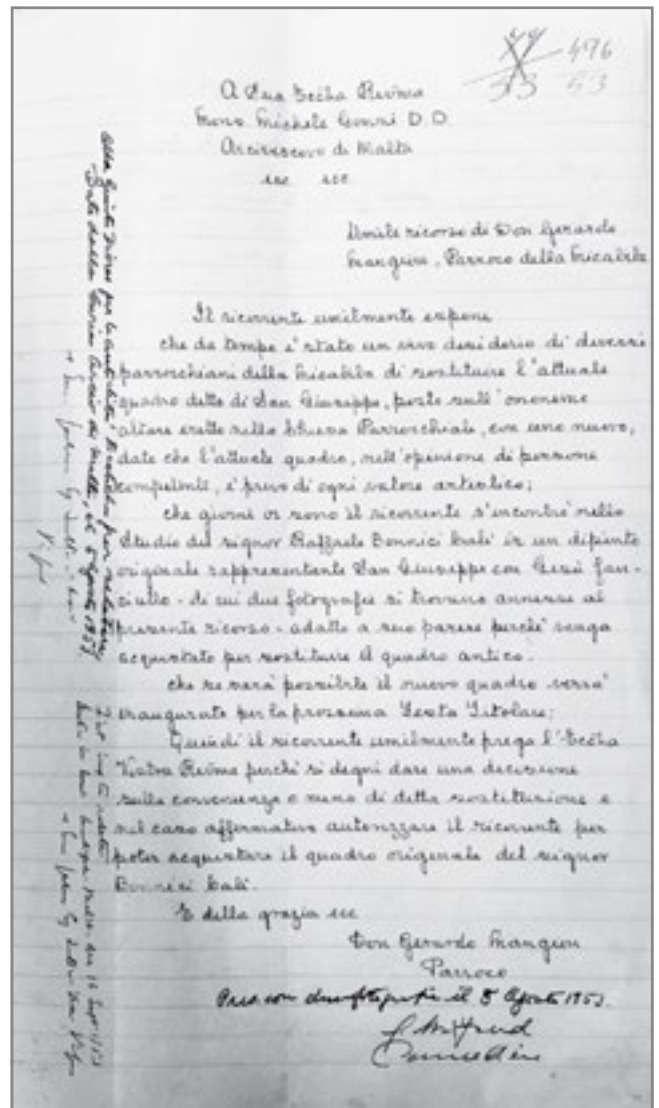 496
53 53
A Sua Eccñza Revma
Mons. Michele Gonzi D.D.
Arcivescovo di Malta
ecc ecc
Umile ricorso di Don Gerardo
Mangion, Parroco della Micabiba
Il ricorrente umilmente espone
che da tempo è stato un vivo desiderio di diversi
parrocchiani della Micabiba di sostituire l'attuale
quadro detto di San Giuseppe, posto sull'omonimo
altare eretto nella Chiesa Parrocchiale, con uno nuovo,
dato che l'attuale quadro, nell'opinione di persone
competenti, è privo di ogni valore artistico;
che giorni or sono il ricorrente s'incontrò nello
Studio del signor Raffaele Bonnici Calì in un dipinto
originale rappresentante San Giuseppe con Gesù fan-
ciullo - di cui due fotografie si trovano annesse al
presente ricorso - adatto a suo parere perchè venga
acquistato per sostituire il quadro antico.
che se sarà possibile il nuovo quadro verrà
inaugurato per la prossima Festa Titolare;
Quindi il ricorrente umilmente prega l'Eccñza
Vostra Revma perchè si degni dare una decisione
sulla convenienza o meno di detta sostituzione e
nel caso affermativo autorizzare il ricorrente per
poter acquistare il quadro originale del signor
Bonnici Calì.
E della grazia ecc
Don Gerardo Mangion
Parroco
Pres. con due fotografie il 5 Agosto 1953.
Alla Giunta Diocesana per le
Data dalla Curia Arciv. di Malta, il 5 Agosto 1953